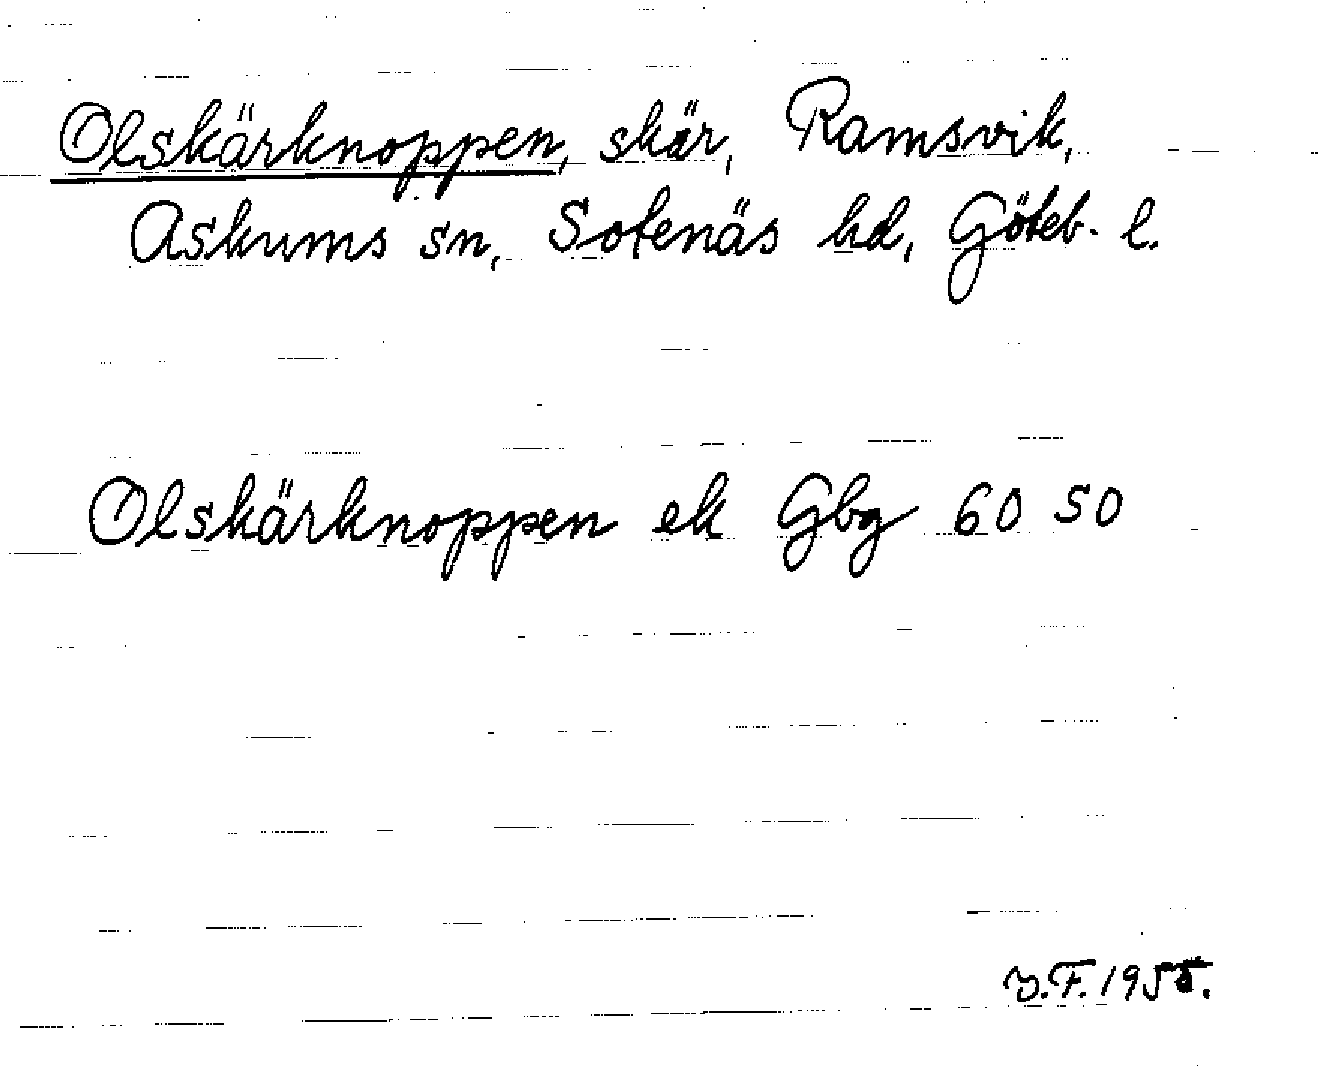 Olskärknoppen, skär, Ramsvik,
Askums sn, Sotenäs hd, Göteb. l.
Olskärknoppen ek Gbg 60 50